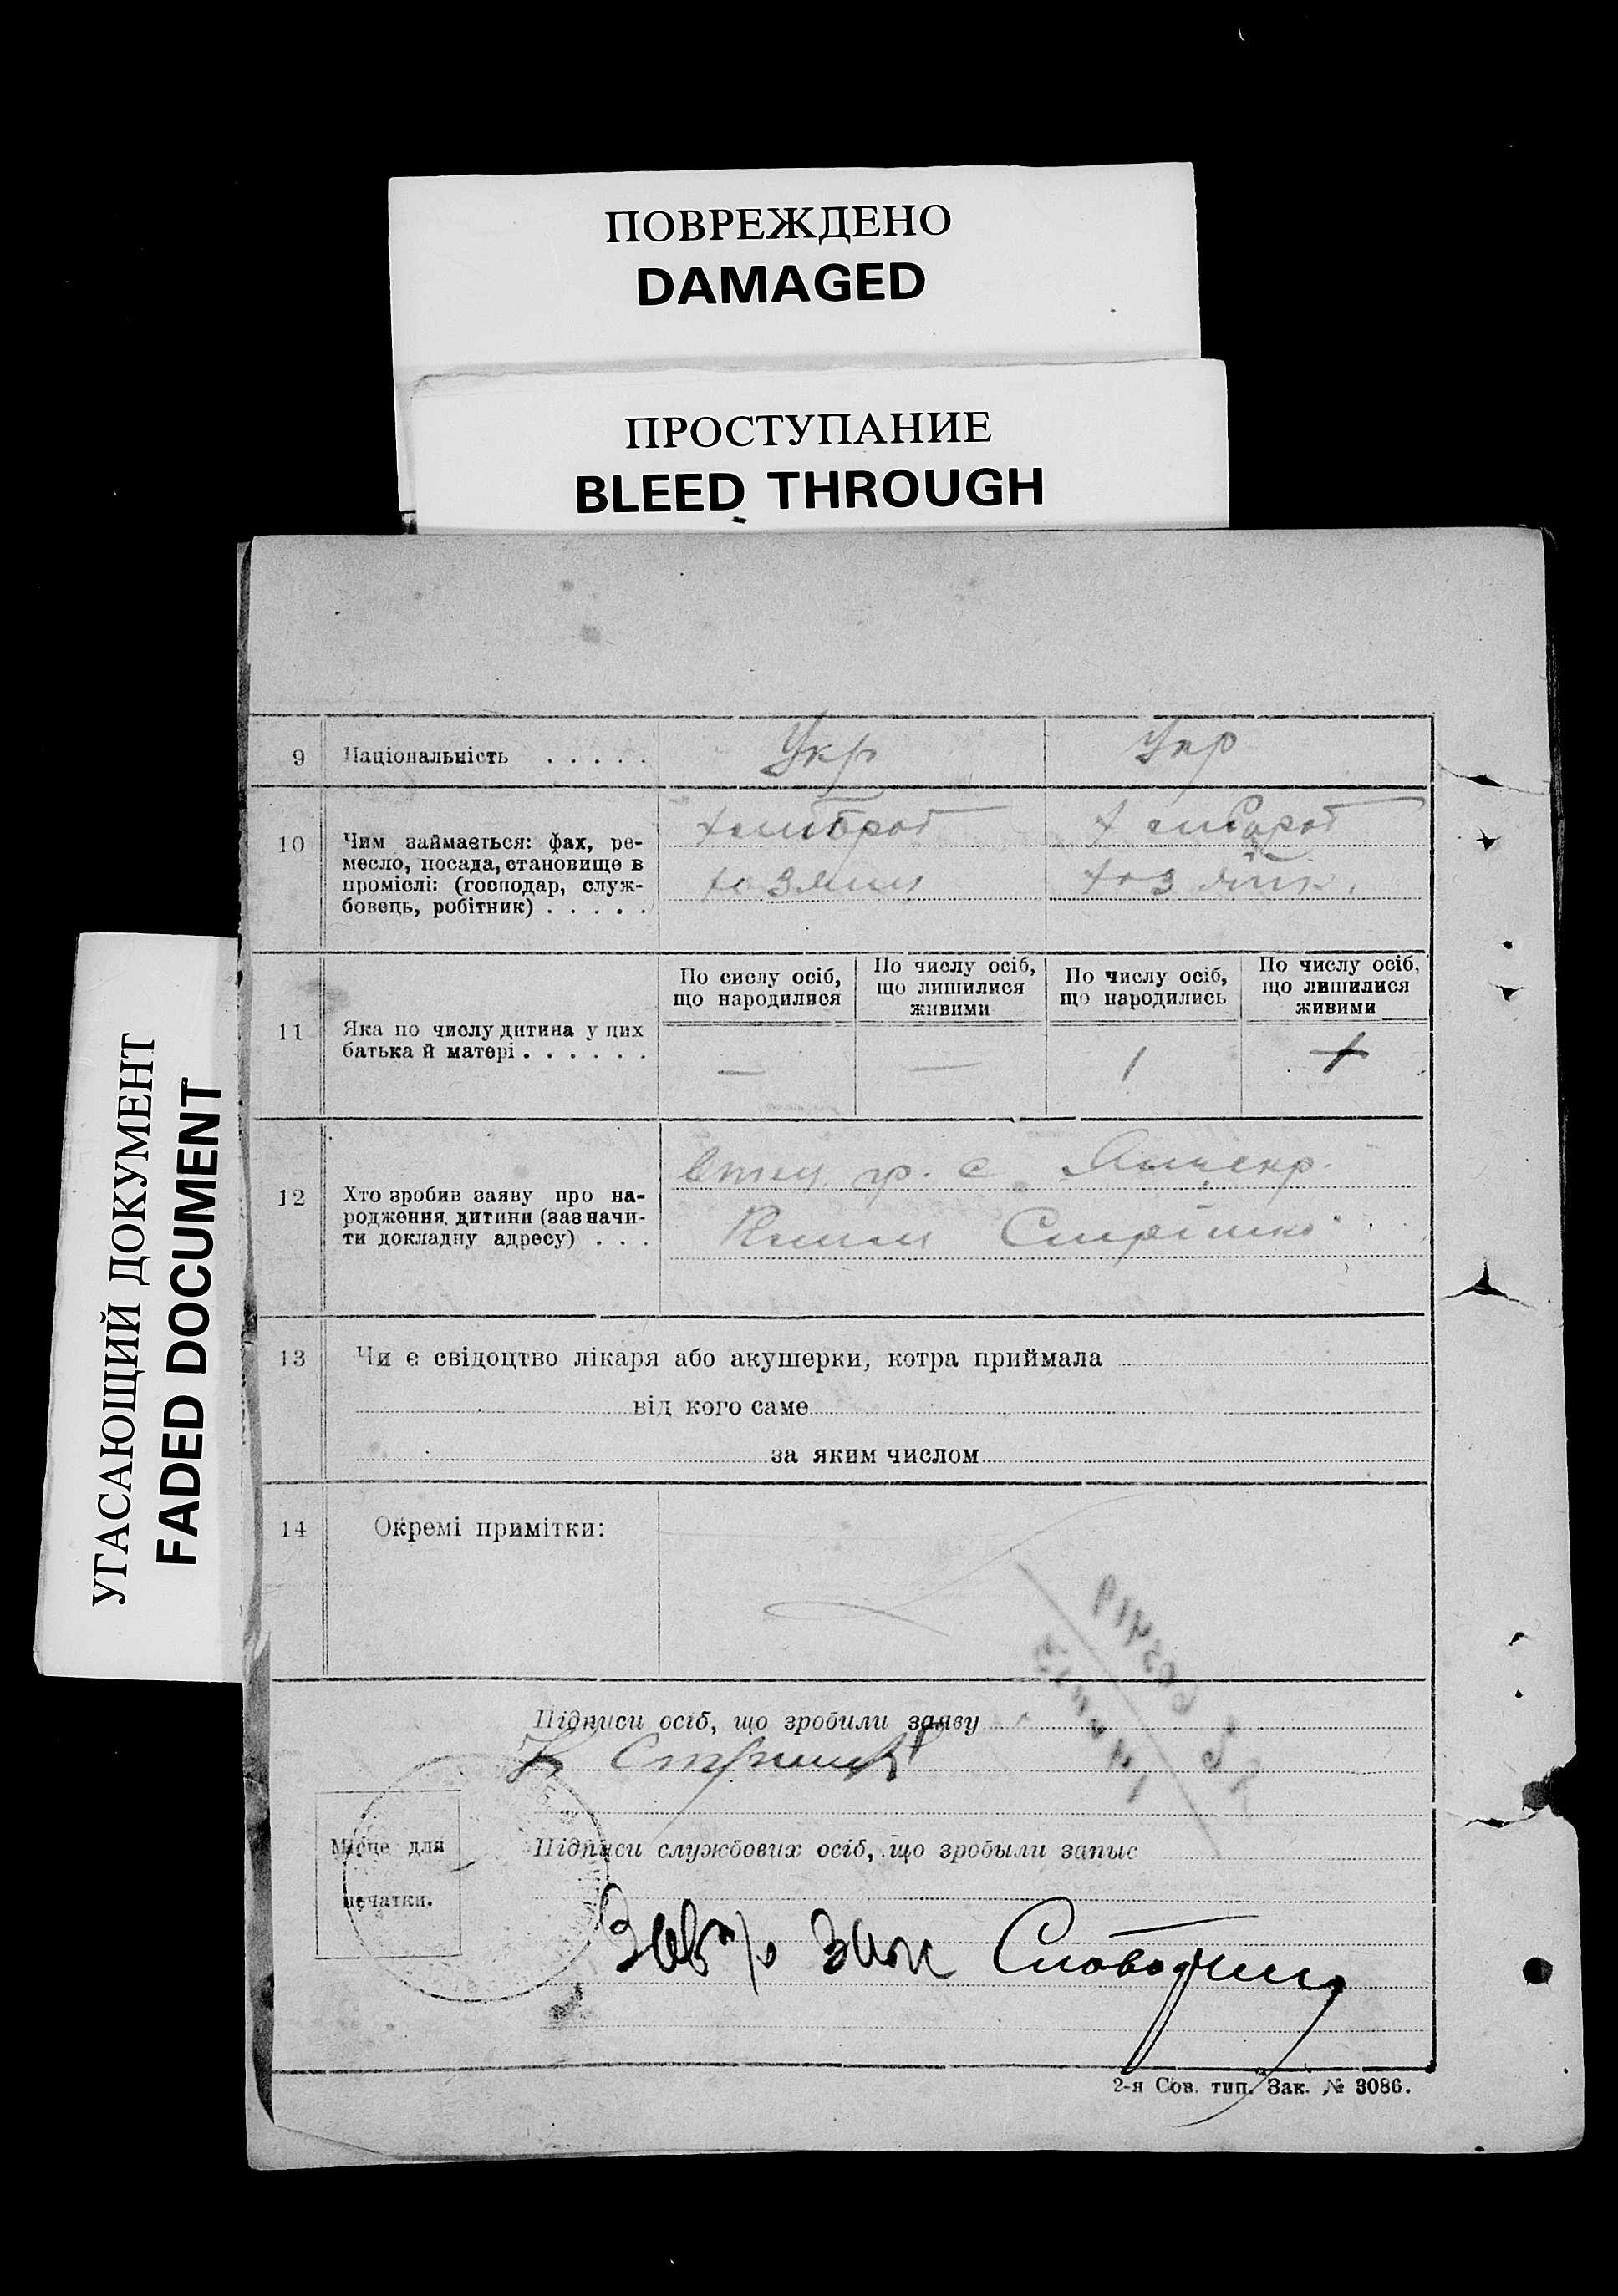 ПОВРЕЖДЕНО
DAMAGED
ПРОСТУПАНИЕ
BLEED THROUGH
УГАСАЮЩИЙ ДОКУМЕНТ
FADED DOCUMENT
9 Національність . . . . . Укр Укр
10 Чим займається: фах, ре-
месло, посада, становище в
проміслі: (господар, служ-
бовець, робітник) . . . . .
хлибороб
хозяин
11 Яка по числу дитина у цих
батька й матері . . . . . .
По сислу осіб,
що народилися
По числу осіб,
що лишилися
живими
По числу осіб,
що народились
По числу осіб,
що лишилися
живими
— — 1 +
12 Хто зробив заяву про на-
родження дитини (зазначи-
ти докладну адресу) . . .
гр. с.
13 Чи є свідоцтво лікаря або акушерки, котра приймала
від кого саме
за яким числом
14 Окремі примітки:
Підписи осіб, що зробили заяву
Місце для
печатки.
Підписи службових осіб, що зробыли запыс
2-я Сов. тип. Зак. № 3086.